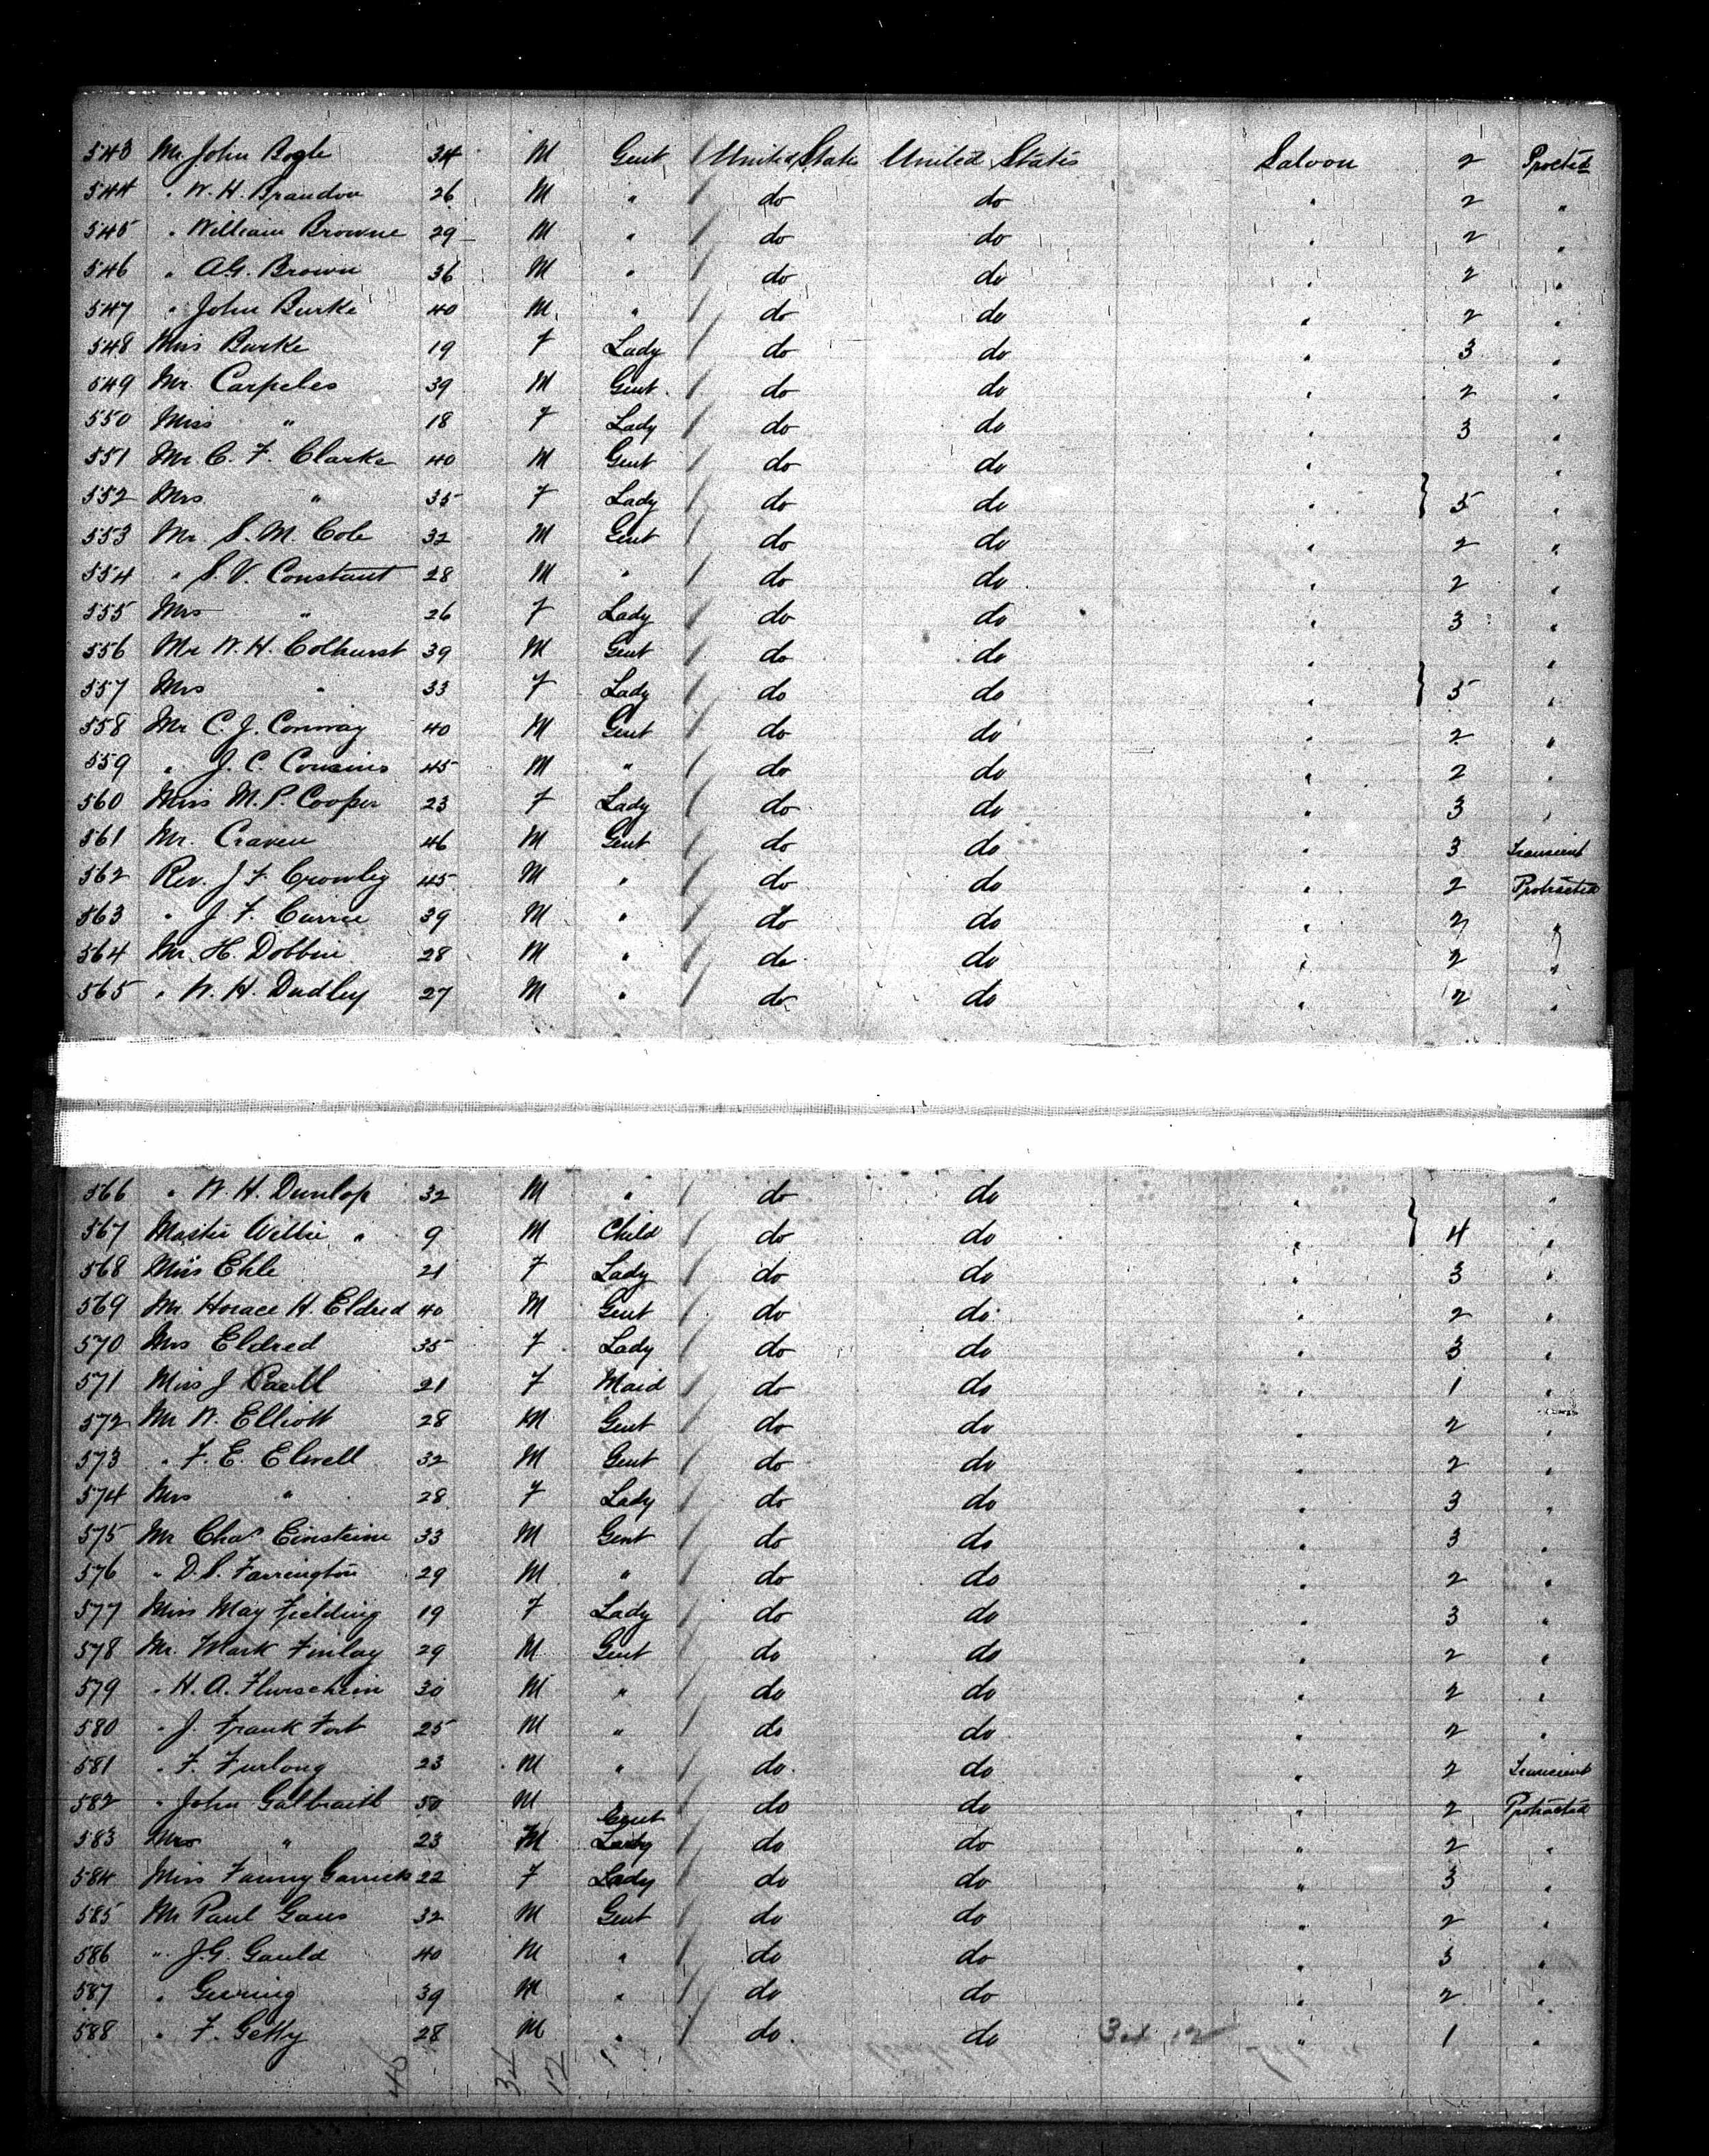 543 Mr John Bogle 34 M Gent United State United States Saloon 2 Protctd
544 " W. H. Brandon 26 M " do do " 2 "
545 " William Browne 29 M " do do " 2 "
546 " A.G. Brown 36 M " do do " 2 "
547 " John Burke 40 M " do do " 2 "
548 Miss Burke 19 F Lady do do " 3 "
549 Mr. Carpeles 39 M Gent do do " 2 "
550 Miss " 18 F Lady do do " 3 "
551 Mr. C. F. Clarke 40 M Gent do do " "
552 Mrs " 35 F Lady do do " } 5 "
553 Mr. S. M. Cole 32 M Gent do do " 2 "
554 " S. V. Constant 28 M " do do " 2 "
555 Mrs " 26 F Lady do do " 3 "
556 Mr W. H. Colhurst 39 M Gent do do " "
557 Mrs " 33 F Lady do do " } 5 "
558 Mr C. J. Conway 40 M Gent do do " 2 "
559 " J. C. Cousins 45 M " do do " 2 "
560 Miss M. P. Cooper 23 F Lady do do " 3 "
561 Mr. Craven 46 M Gent do do " 3 Transient
562 Rev. J F Crowley 45 M " do do " 2 Protracted
563 " J. F. Currie 39 M " do do " 2 "
564 Mr. H. Dobbin 28 M " do do " 2 "
565 " W. H. Dudley 27 M " do do " 2 "
566 " W. H. Dunlop 32 M " do do " "
567 Master Willie " 9 M Child do do " } 4 "
568 Miss Ehle 21 F Lady do do " 3 "
569 Mr. Horace H. Eldred 40 M Gent do do " 2 "
570 Mrs Eldred 35 F Lady do do " 3 "
571 Miss J 21 F Maid do do " 1 "
572 Mr W. Elliott 28 M Gent do do " 2 "
573 " F. E. Elwell 32 M Gent do do " 2 "
574 Mrs " 28 F Lady do do " 3 "
575 Mr Chas Einsteine 33 M Gent do do " 3 "
576 " D. S. Farrington 29 M " do do " 2 "
577 Miss May Fielding 19 F Lady do do " 3 "
578 Mr. Mark Finlay 29 M Gent do do " 2 "
579 " H. A. Flurschein 30 M " do do " 2 "
580 " J. Frank Fort 25 M " do do " 2 "
581 " F. Furlong 23 M " do do " 2 Transient
582 " John Galbraith 50 M Gent do do " 2 Protracted
583 Mrs " 23 M Lady do do " 2 "
584 Miss Fanny Garrick 22 F Lady do do " 3 "
585 Mr Paul Gaus 32 M Gent do do " 2 "
586 " J. G. Gauld 40 M " do do " 3 "
587 " 39 M " do do " 2 "
588 " F. Getty 28 M " do do " 1 "
46 34 12